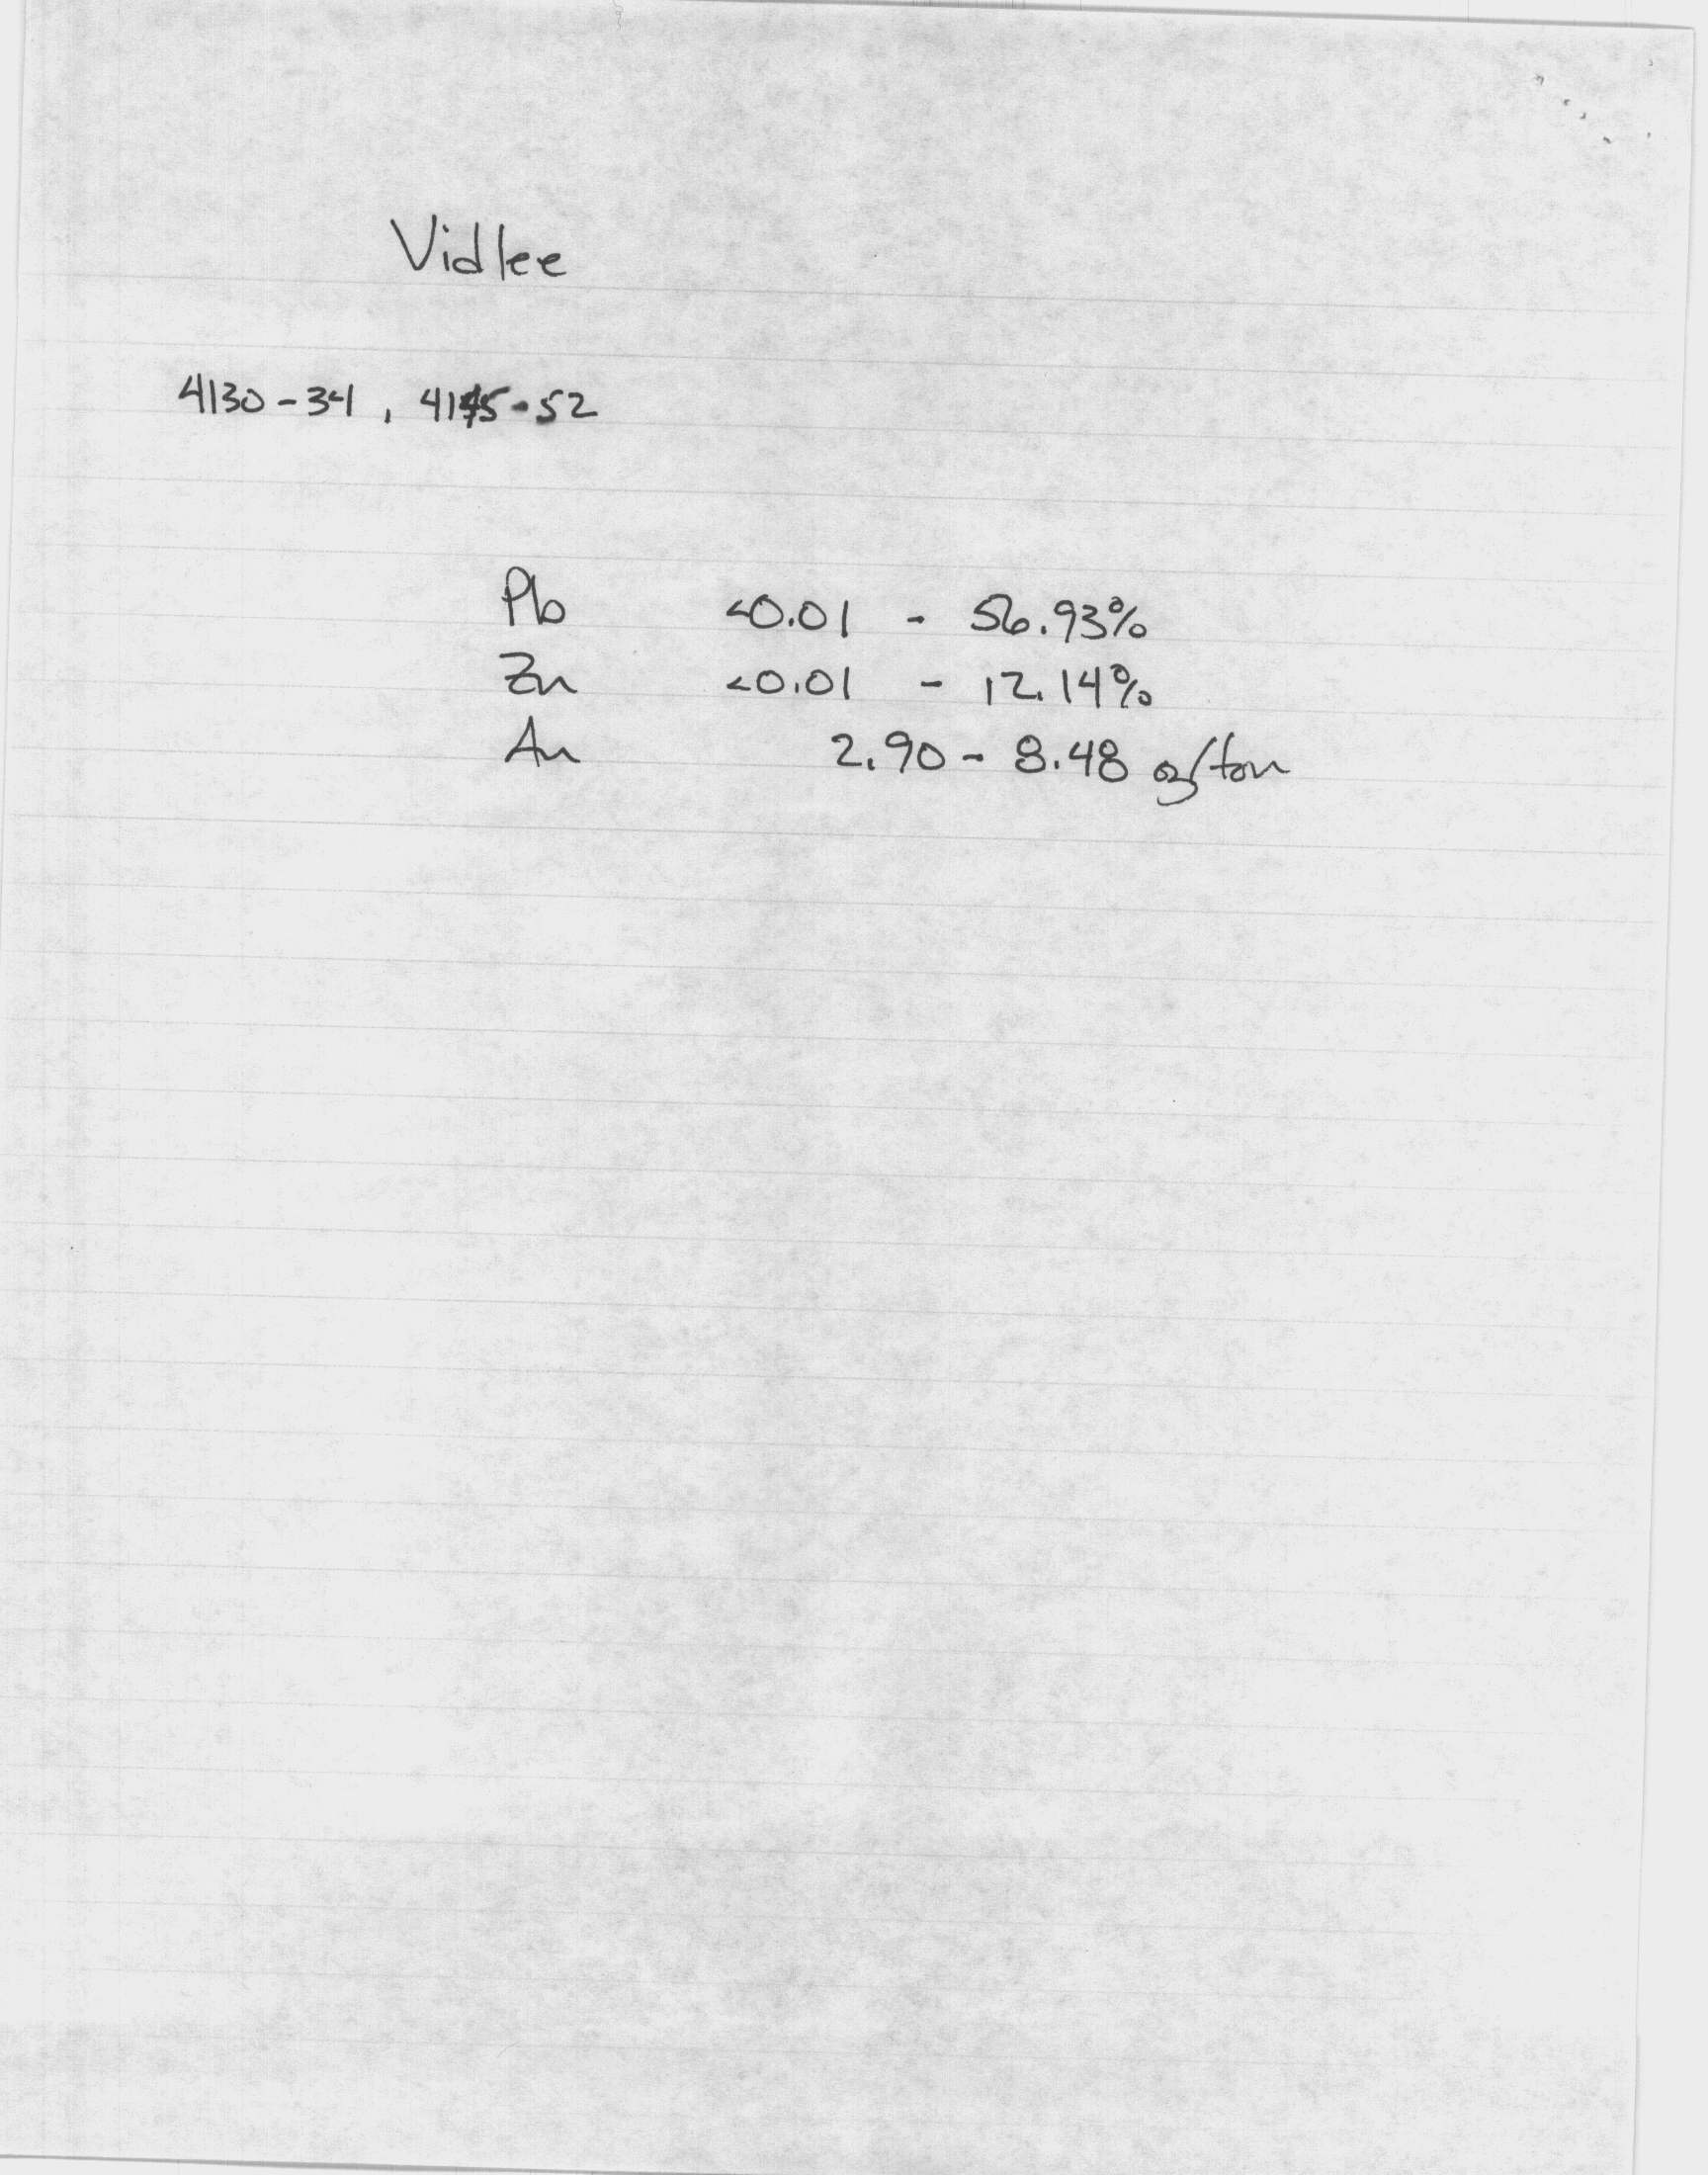 Vidlee
4130-34, 4145-52
Pb <0.01 - 56.93%
Zn <0.01 - 12.14%
Au 2.90 - 8.48 oz/ton